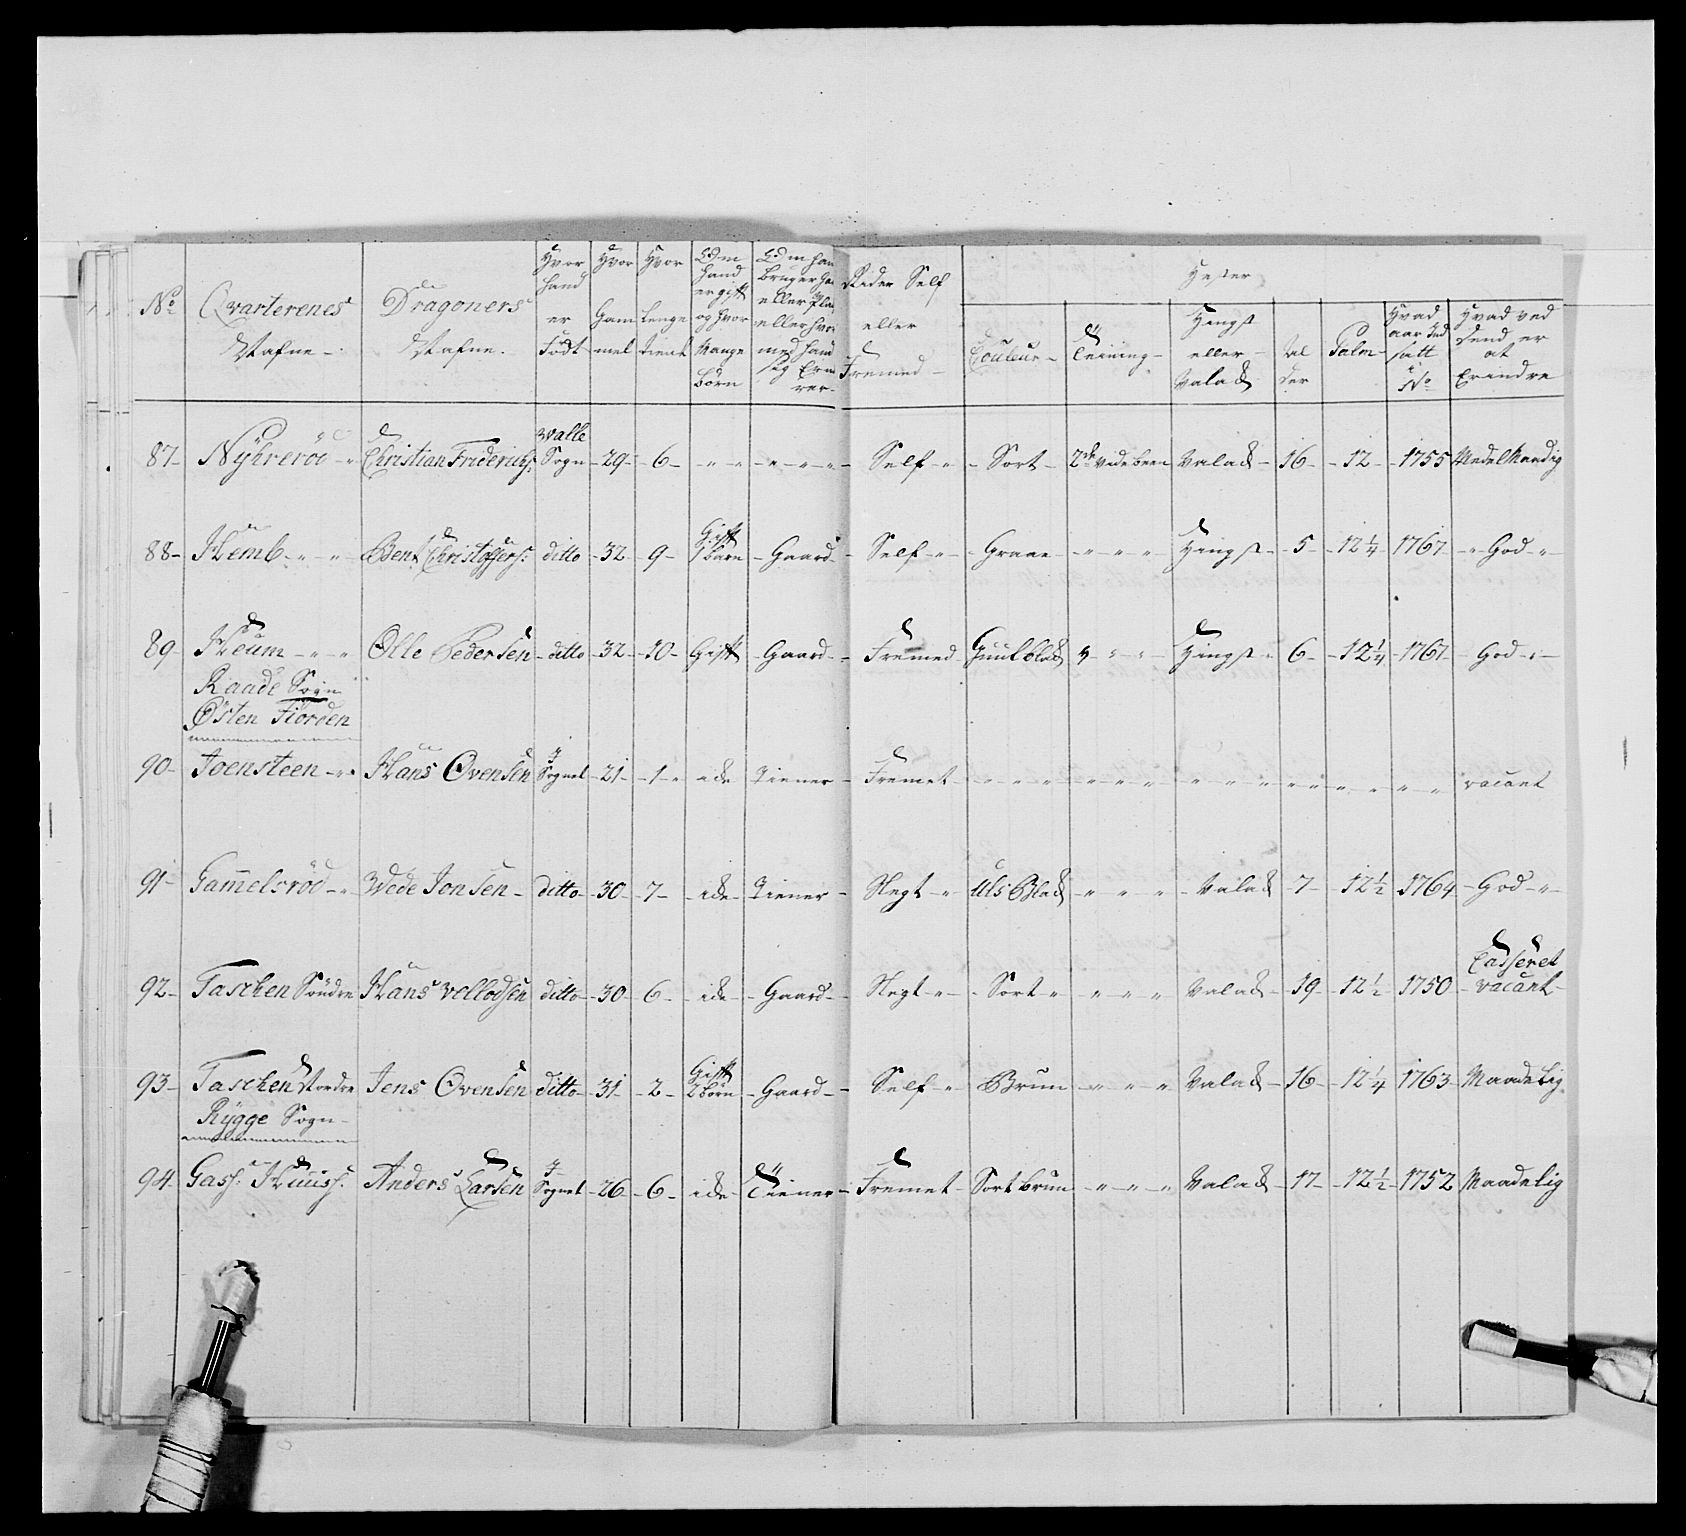 No Qvarterenes Nafne Dragoners Nafne. Hvor hand er Födt Hvor Gammel Hvor Lenge Tient Om hand er gift og hvor Mange Börn Om han Bruger eller eller med hand sig Rider Self eller Fremed Hester
Couleur Teining Hingst eller Valack Alder Palm Hvad aar Ind satt i No Hvad ved send er at Erindre
87 Nÿhreröd Christian Friderichs: Walle Sogn 29 6 Self Sort 2de videbeen Valack 16 12 1755 Medelmaadig
88 Hemb Bent Christophers: ditto 32 9 Gift 1 barn Gaard Self Graae Hingst 5 12 1/4 1767 God
89 Heum Olle Pedersen ditto 32 10 Gift Gaard Fremed Guulblack Hingst 6 12 1/4 1767 God
Raade Sogn
Östen Fiorden
90 Joensteen Hans Ovensen i Sognet 21 1 ide Tiener Fremet vacant
91 Gam̄elsröd Wede Jonsen ditto 30 7 ide Tiener Negt Uls Black Valack 7 12 1/2 1764 God
92 Taschen Söndre Hans Vellodsen ditto 30 6 ide Gaard Negt Sort Valack 19 12 1/2 1750 Casseret vacant
93 Taschen Nordre Jens Ovensen ditto 31 2 Gift 2 börn Gaard Self Brun Valack 16 12 1/4 1763 Maadelig
Rÿgge Sogn
94 Gass: Huuss: Anders Larsen i Sognet 26 6 ide Tiener Fremet Sortbrun Valack 17 12 1/2 1752 Maadelig